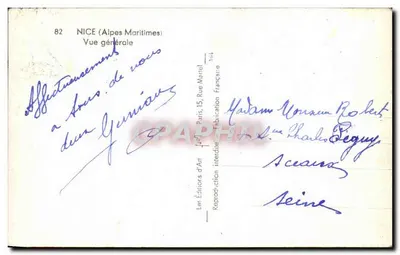 82 NICE (Alpes Maritimes)
Vue générale
Affectueusement
à tous de nous
deux
Les Editions d'Art Paris, 15, Rue Martel
Reproduction interdite Fabrication Française
Madame Monsieur Robert
Rue Charles Péguy
Sceaux
Seine